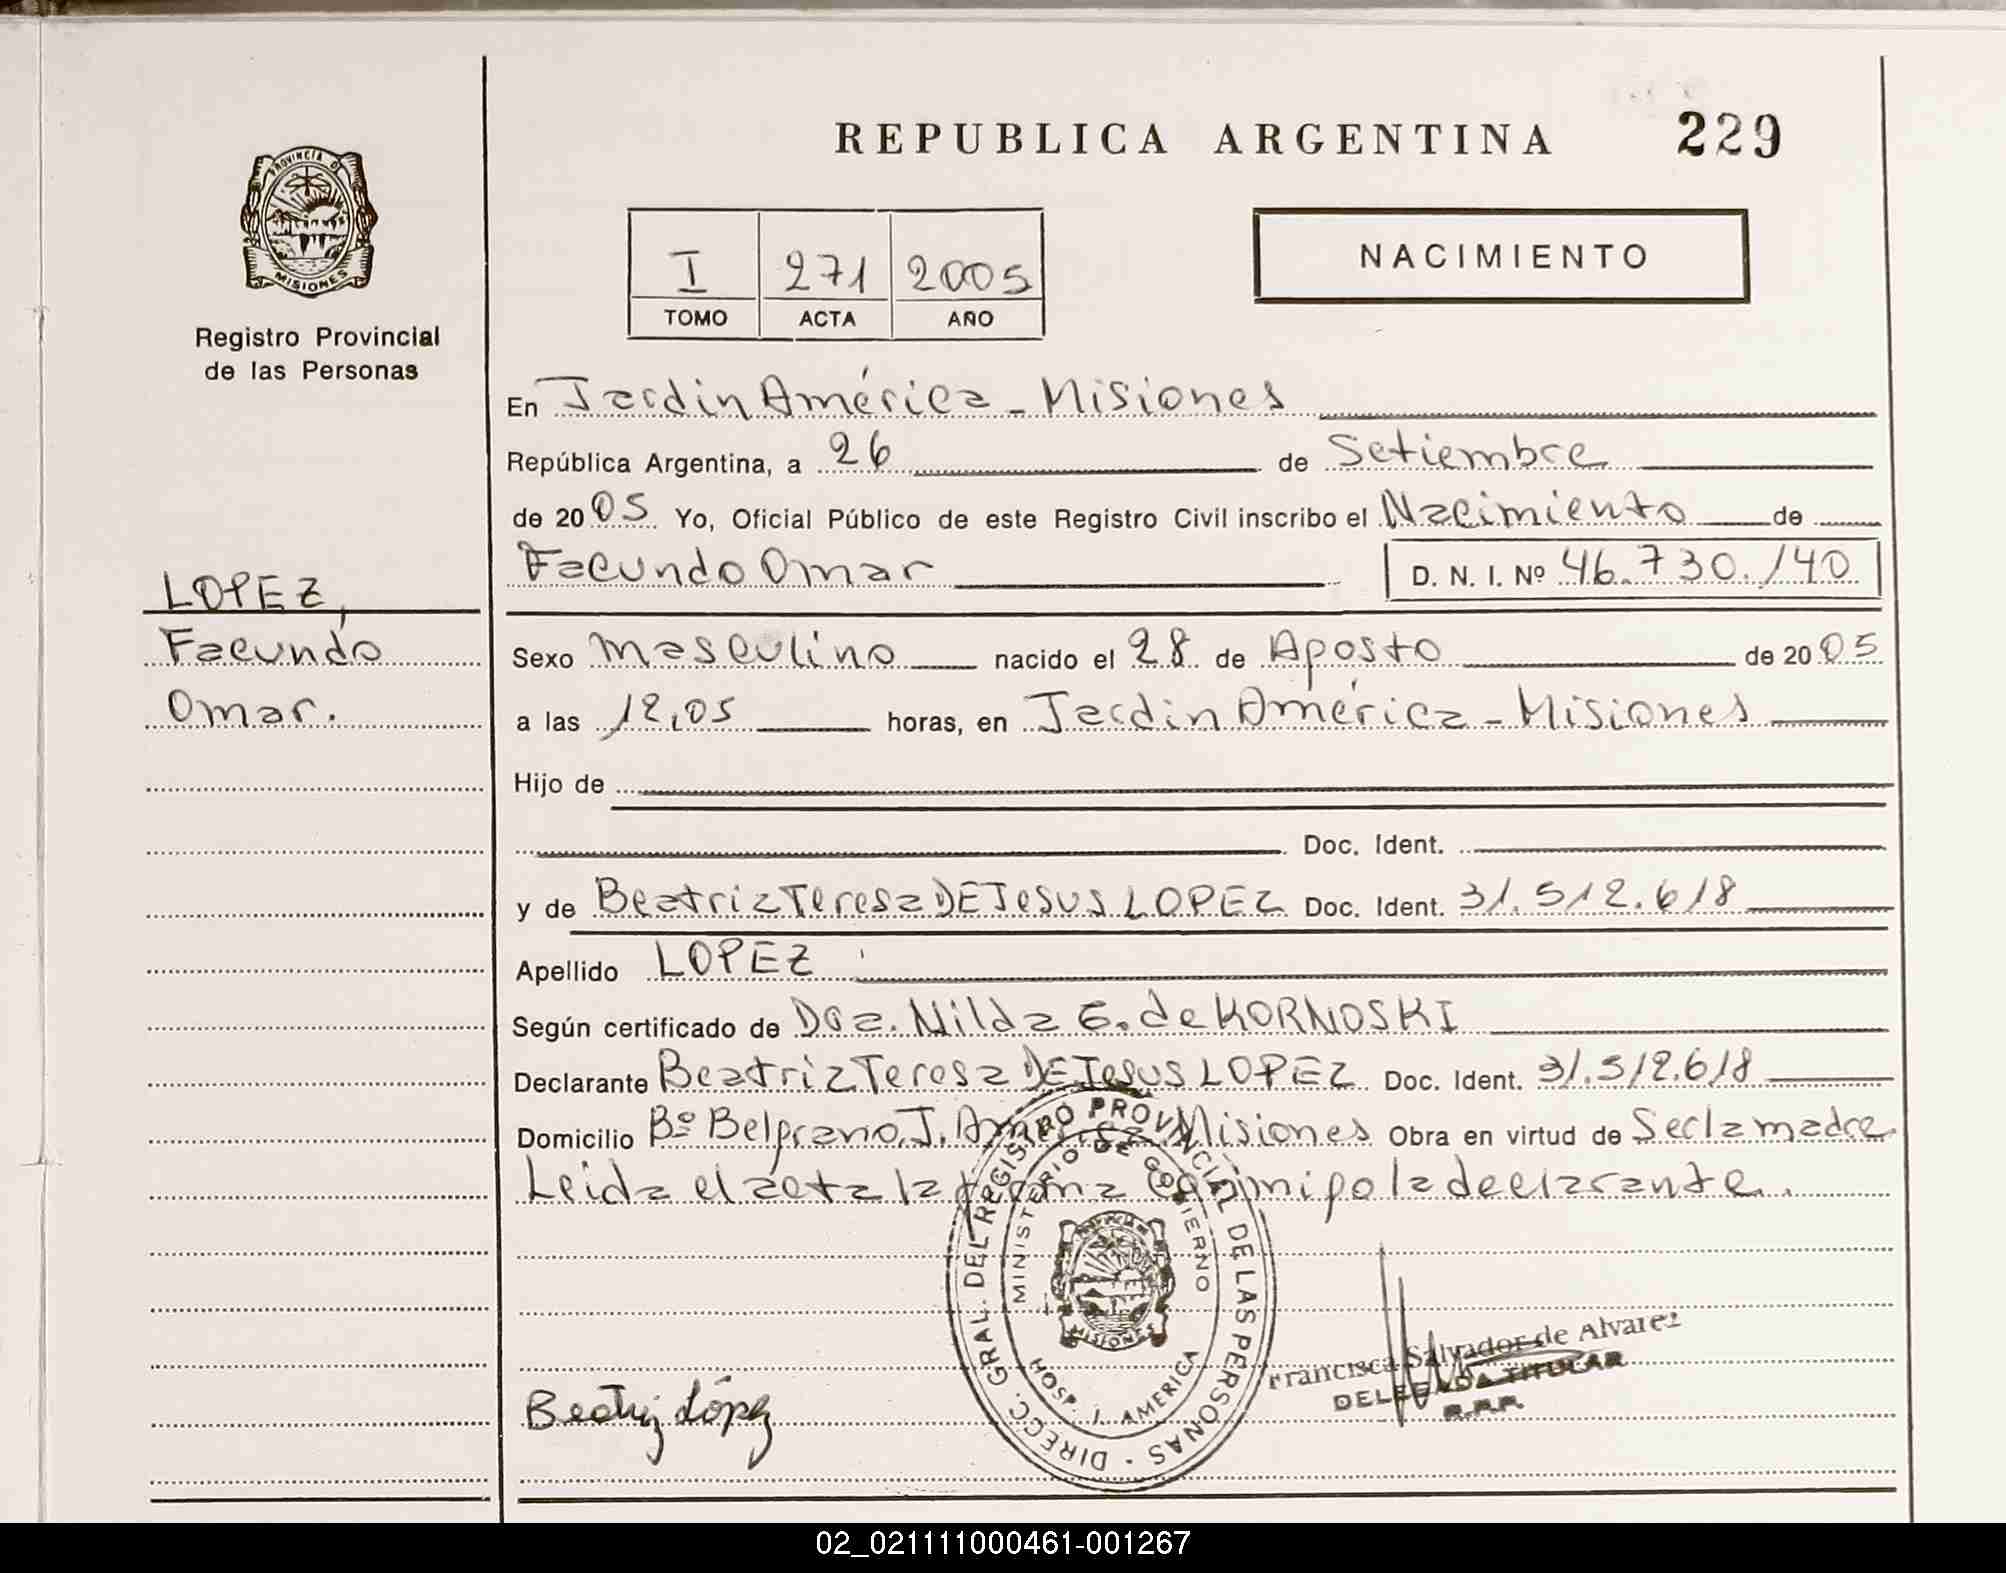 REPUBLICA ARGENTINA 229
PROVINCIA DE MISIONES
Registro Provincial
de las Personas
I 271 2005
TOMO ACTA AÑO
NACIMIENTO
En Jardin América - Misiones
República Argentina, a 26 de Setiembre
de 2005 Yo, Oficial Público de este Registro Civil inscribo el Nacimiento de
Facundo Omar D. N. I. Nº 46.730.140
LOPEZ,
Facundo
Omar.
Sexo masculino nacido el 28 de Agosto de 2005
a las 12,05 horas, en Jardin América - Misiones
Hijo de
Doc. Ident.
y de Beatriz Teresa DE JESUS LOPEZ Doc. Ident. 31.512.618
Apellido LOPEZ
Según certificado de Dra. Nilda E. de KORNOSKI
Declarante Beatriz Teresa DE JESUS LOPEZ Doc. Ident. 31.512.618
Domicilio Bº Belgrano J. América Misiones Obra en virtud de Ser la madre
Leida el acta la firma conmigo la declarante.
DIRECC. GRAL. DEL REGISTRO PROVINCIAL DE LAS PERSONAS
MINISTERIO DE GOBIERNO
MISIONES
HOSP. J. AMERICA
Beatriz López
Francisca Salvador de Alvarez
DELEGADA TITULAR
R.P.P.
02_021111000461-001267